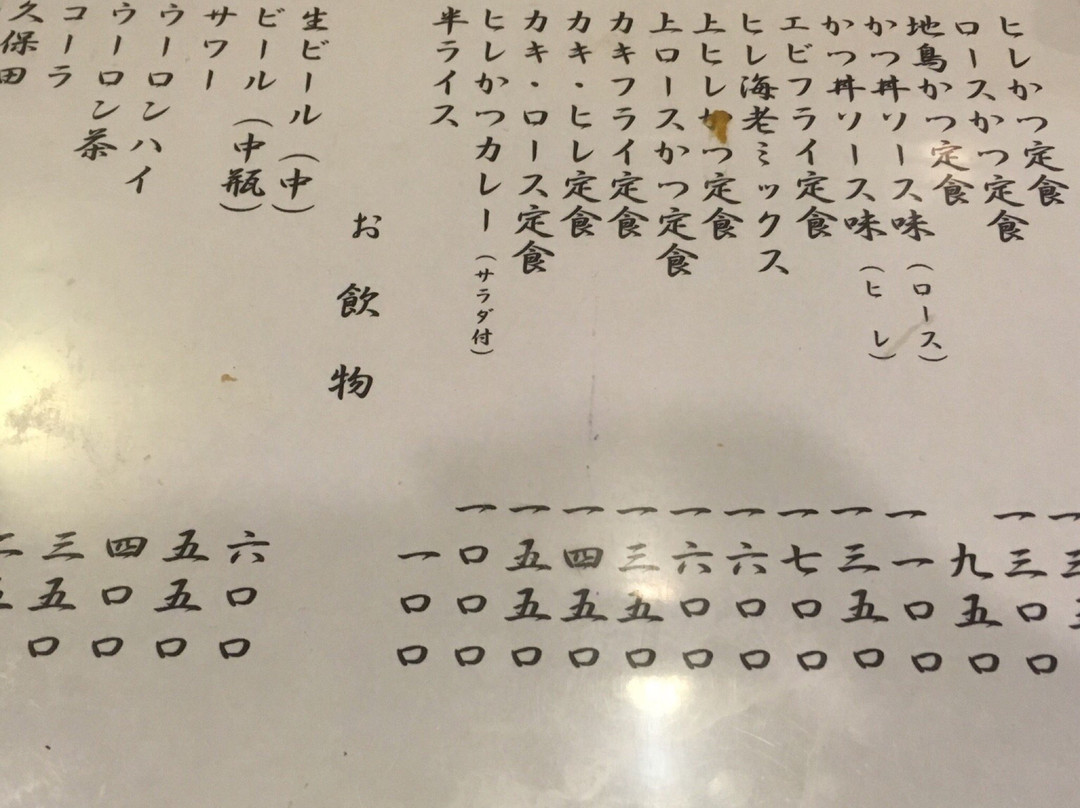 ヒレかつ定食
ロースかつ定食
地鳥かつ定食 一三〇〇
かつ丼ソース味(ロース) 九五〇
かつ丼ソース味(ヒレ) 一一〇〇
エビフライ定食 一三五〇
ヒレ海老ミックス 一七〇〇
上ヒレかつ定食 一六〇〇
上ロースかつ定食 一六〇〇
カキフライ定食 一三五〇
カキ・ヒレ定食 一四五〇
カキ・ロース定食 一五五〇
ヒレかつカレー(サラダ付) 一〇〇〇
半ライス 一〇〇
お飲物
生ビール(中) 六〇〇
ビール(中瓶) 五五〇
サワー 四〇〇
ウーロンハイ 三五〇
ウーロン茶
コーラ
久保田